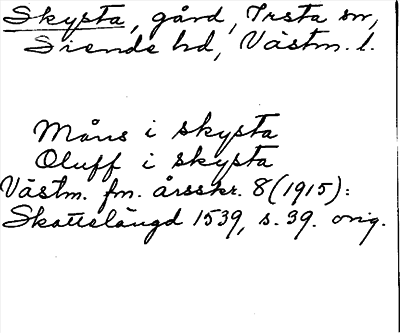 Skysta, gård, Irsta sn,
Siende hd, Västm. l.
Måns i skysta
Oluff i skysta
Västm. fm. årsskr. 8 (1915):
Skattelängd 1539, s. 39. orig.